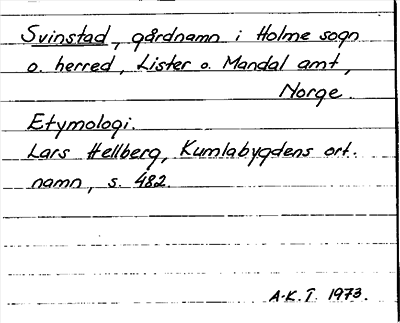 Svinstad, gårdnamn i Holme sogn
o. herred, Lister o. Mandal amt,
Norge.
Etymologi.
Lars Hellberg, Kumlabygdens ort.
namn, s. 482.
A-K. T. 1973.